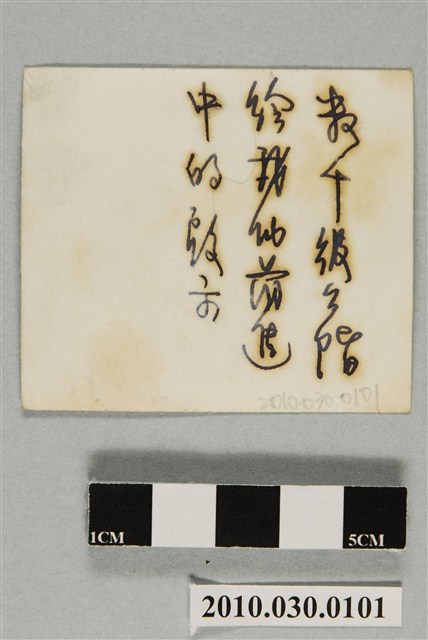 數千級台階
給我們前進
中的啟示
2010.030.0101
1CM
5CM
2010.030.0101